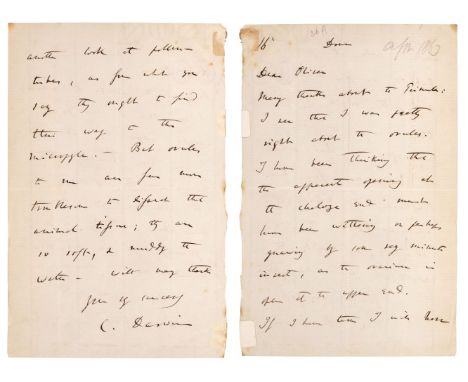 16th Down
Dear Oliver
Many thanks about the Primula:
I see that I was partly
right about the ovules.
I have been thinking that
the apparent opening at
the chalaza end must
have been withering or perhaps
gnawing by some very minute
insect, as the ovarium is
open at the upper end.
If I have time I will have
another look at pollen-
tubes, as from what you
say they ought to find
their way to the
micropyle. — But ovules
to me are far more
troublesome to dissect than
animal tissue; they are
so soft, & muddy the
water — With many thanks
Yours very sincerely
C. Darwin